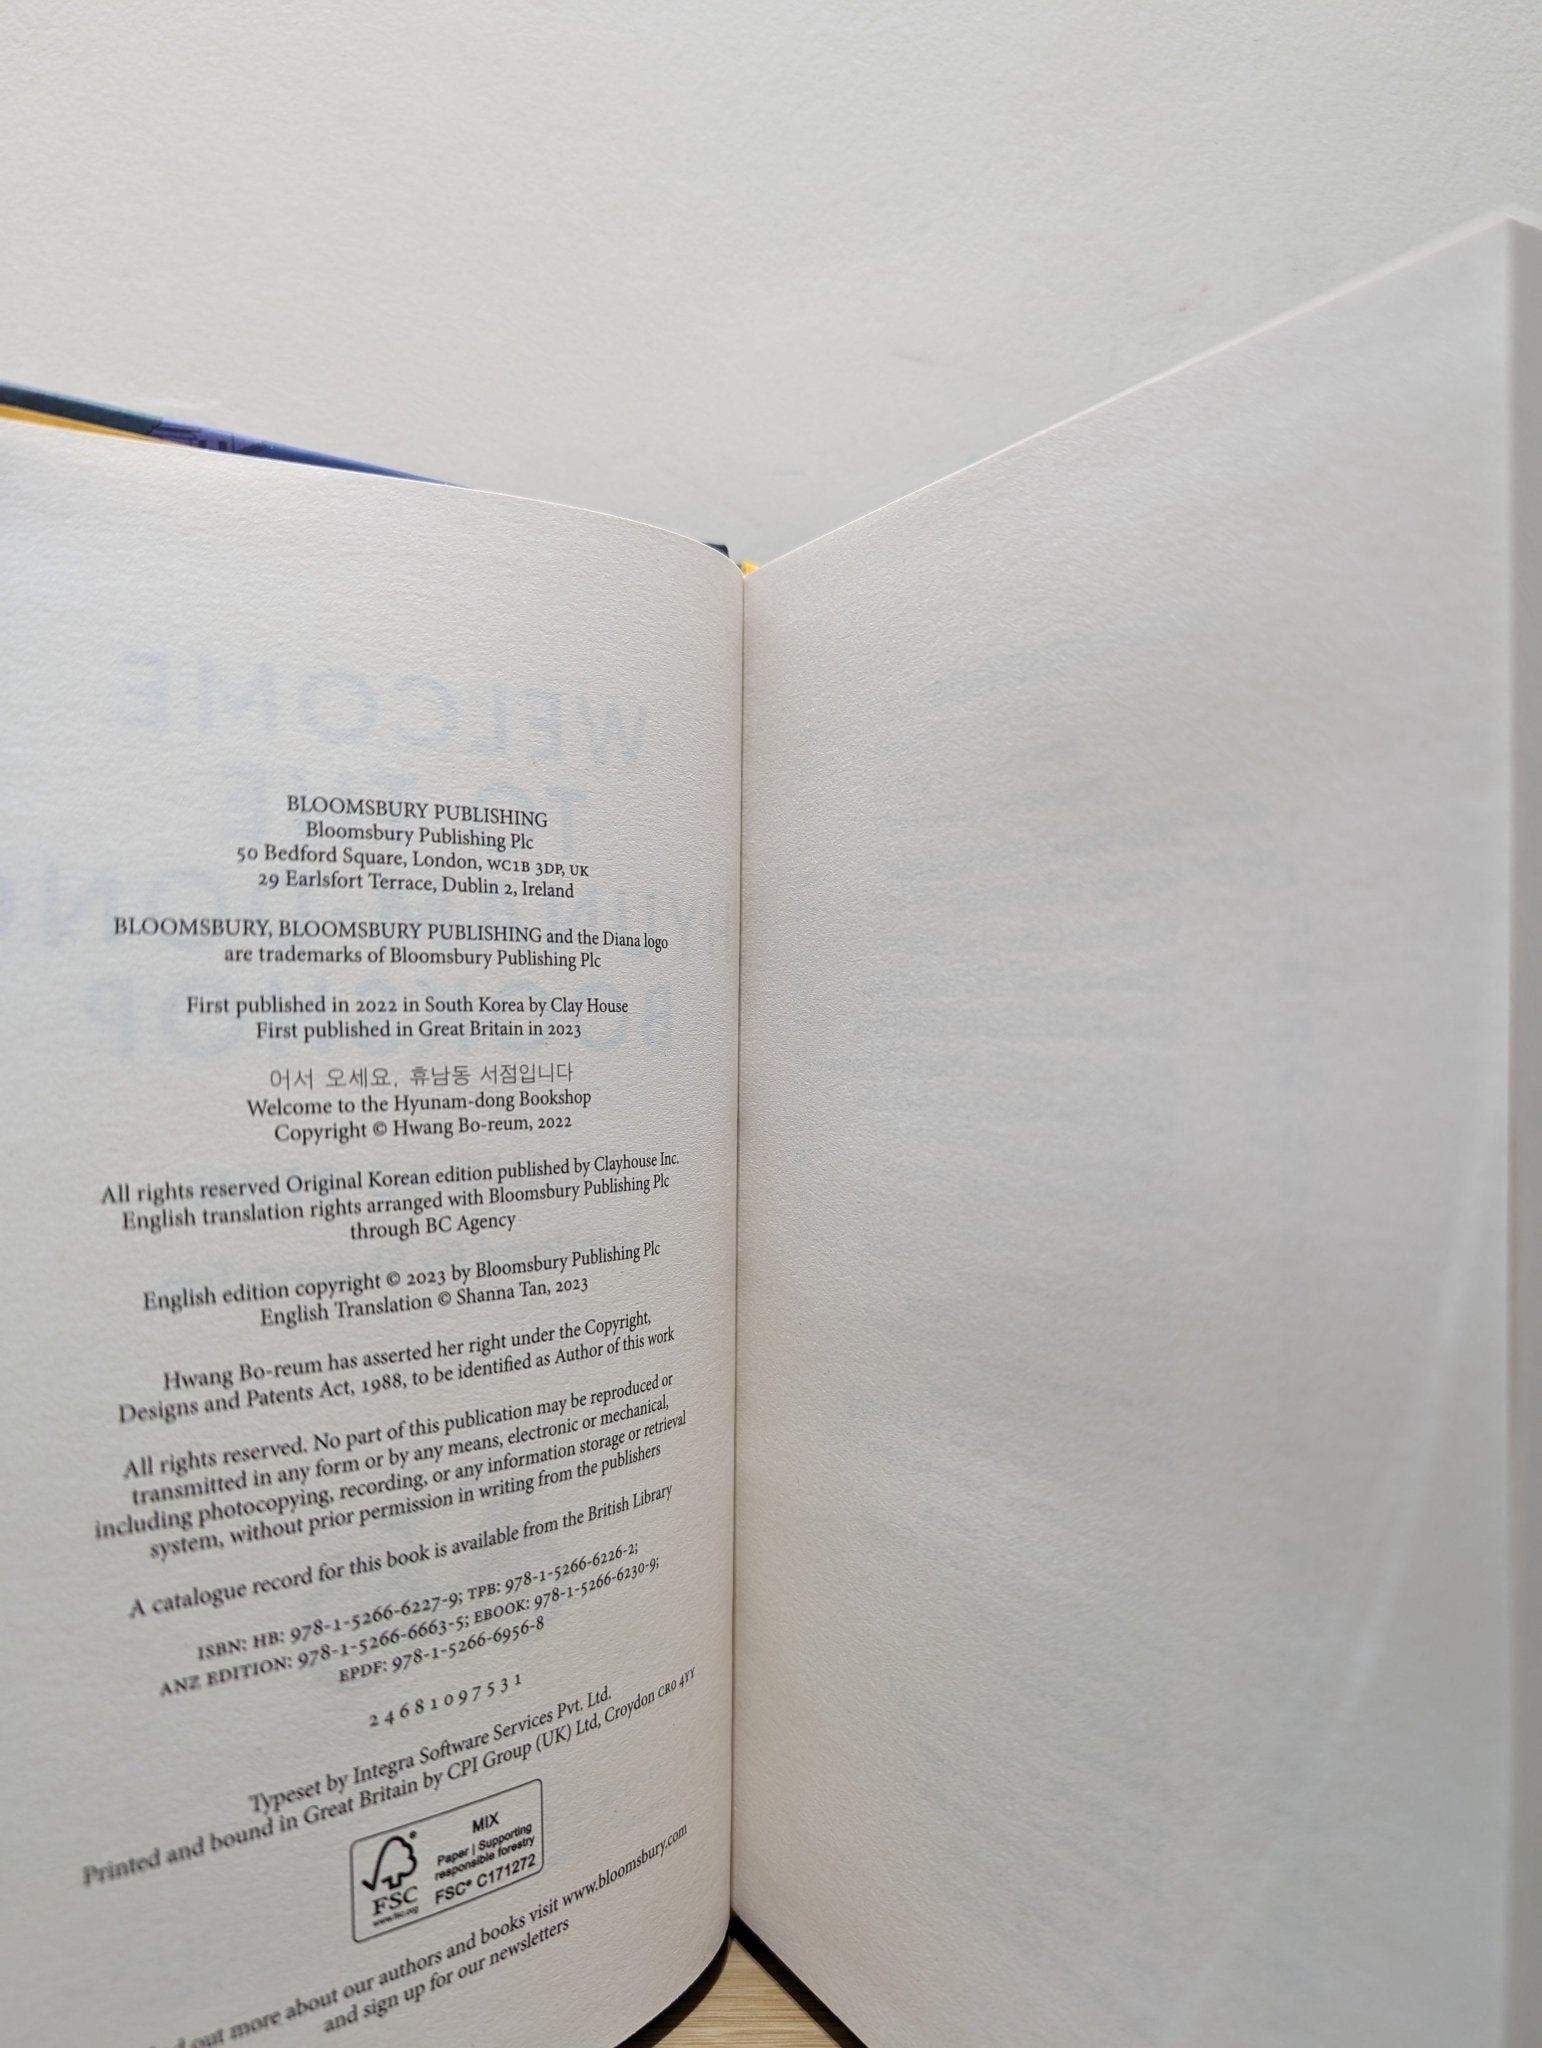 BLOOMSBURY PUBLISHING
Bloomsbury Publishing Plc
50 Bedford Square, London, WC1B 3DP, UK
29 Earlsfort Terrace, Dublin 2, Ireland
BLOOMSBURY, BLOOMSBURY PUBLISHING and the Diana logo
are trademarks of Bloomsbury Publishing Plc
First published in 2022 in South Korea by Clay House
First published in Great Britain in 2023
어서 오세요, 휴남동 서점입니다
Welcome to the Hyunam-dong Bookshop
Copyright © Hwang Bo-reum, 2022
All rights reserved Original Korean edition published by Clayhouse Inc.
English translation rights arranged with Bloomsbury Publishing Plc
through BC Agency
English edition copyright © 2023 by Bloomsbury Publishing Plc
English Translation © Shanna Tan, 2023
Hwang Bo-reum has asserted her right under the Copyright,
Designs and Patents Act, 1988, to be identified as Author of this work
All rights reserved. No part of this publication may be reproduced or
transmitted in any form or by any means, electronic or mechanical,
including photocopying, recording, or any information storage or retrieval
system, without prior permission in writing from the publishers
A catalogue record for this book is available from the British Library
ISBN: HB: 978-1-5266-6227-9; TPB: 978-1-5266-6226-2;
ANZ EDITION: 978-1-5266-6663-5; EBOOK: 978-1-5266-6230-9;
EPDF: 978-1-5266-6956-8
2 4 6 8 10 9 7 5 3 1
Typeset by Integra Software Services Pvt. Ltd.
Printed and bound in Great Britain by CPI Group (UK) Ltd, Croydon CR0 4YY
MIX
Paper | Supporting
responsible forestry
FSC
www.fsc.org
FSC® C171272
out more about our authors and books visit www.bloomsbury.com
and sign up for our newsletters